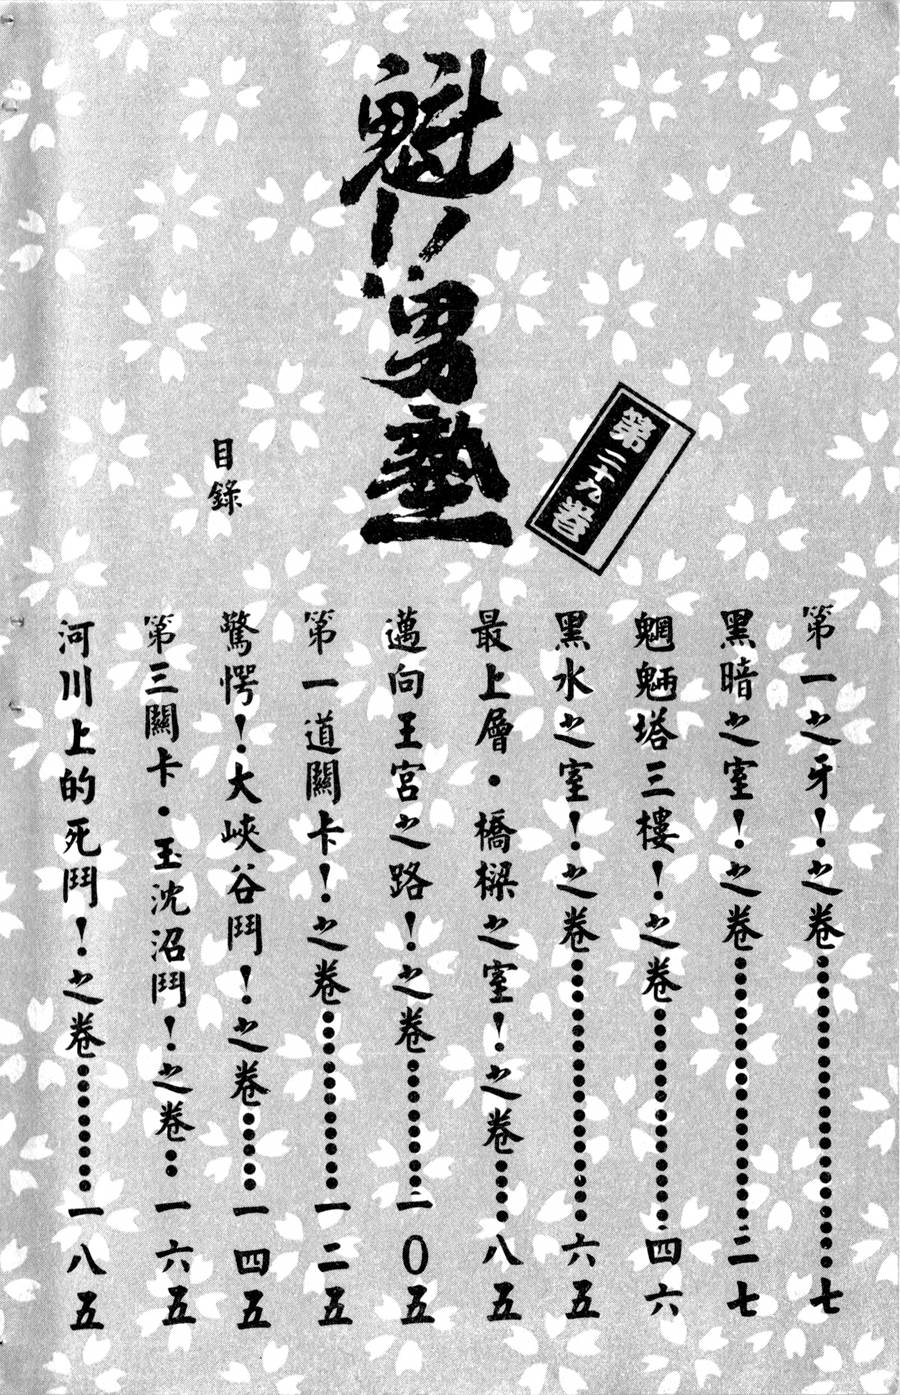 魁!!男塾
第二十九卷
目錄
第一之牙！之卷……七
黑暗之室！之卷……二七
魍魎塔三樓！之卷……四六
黑水之室！之卷……六五
最上層・橋樑之室！之卷……八五
邁向王宮之路！之卷……一0五
第一道關卡！之卷……一二五
驚愕！大峽谷鬥！之卷……一四五
第三關卡・玉沈沼鬥！之卷……一六五
河川上的死鬥！之卷……一八五